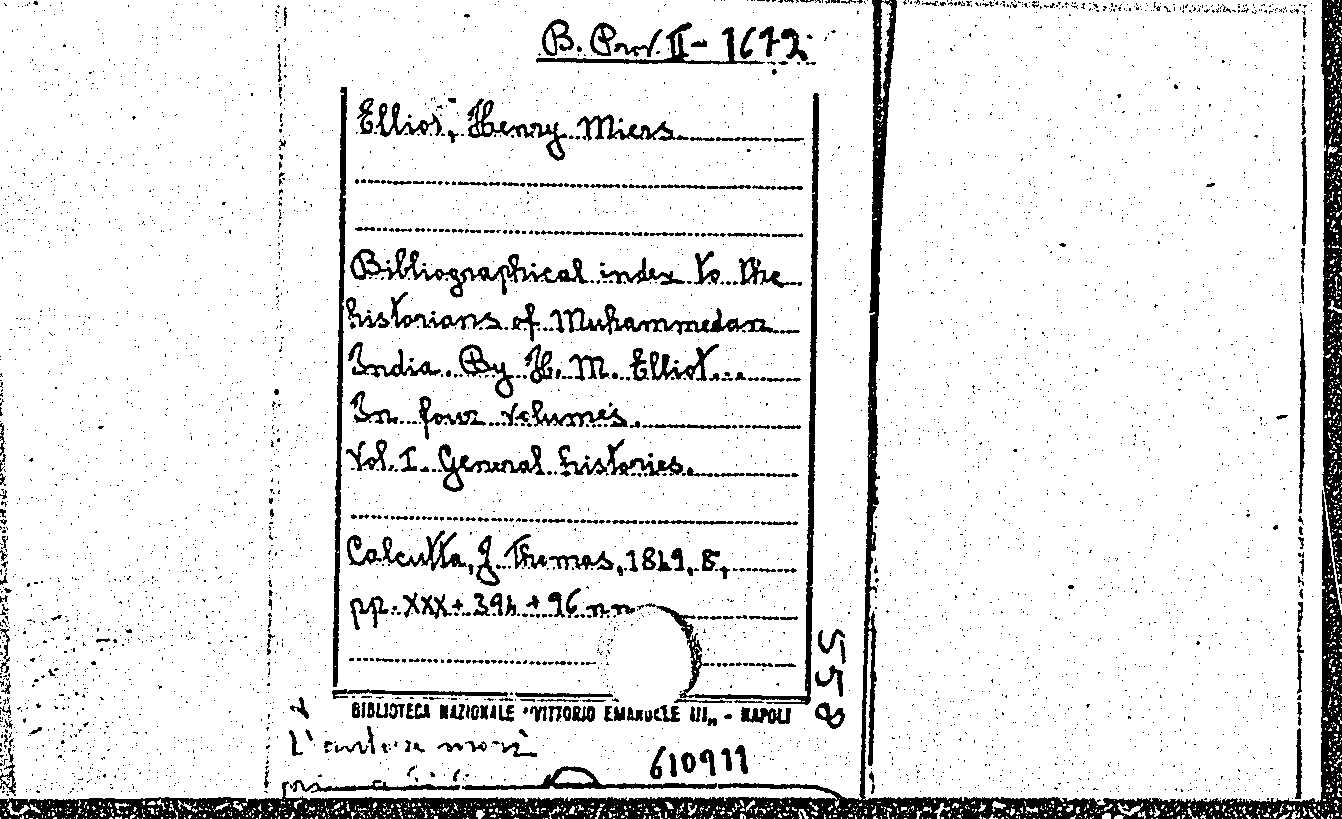 B. Prov. II - 1672
Elliot, Henry Miers
Bibliographical index to the
historians of Muhammedan
India. By H. M. Elliot...
In four volumes.
Vol. I. General histories.
Calcutta, J. Thomas, 1849, 8,
pp. XXX + 394 + 96 nn
558
BIBLIOTECA NAZIONALE "VITTORIO EMANUELE III„ - NAPOLI
L'autore morì
610911